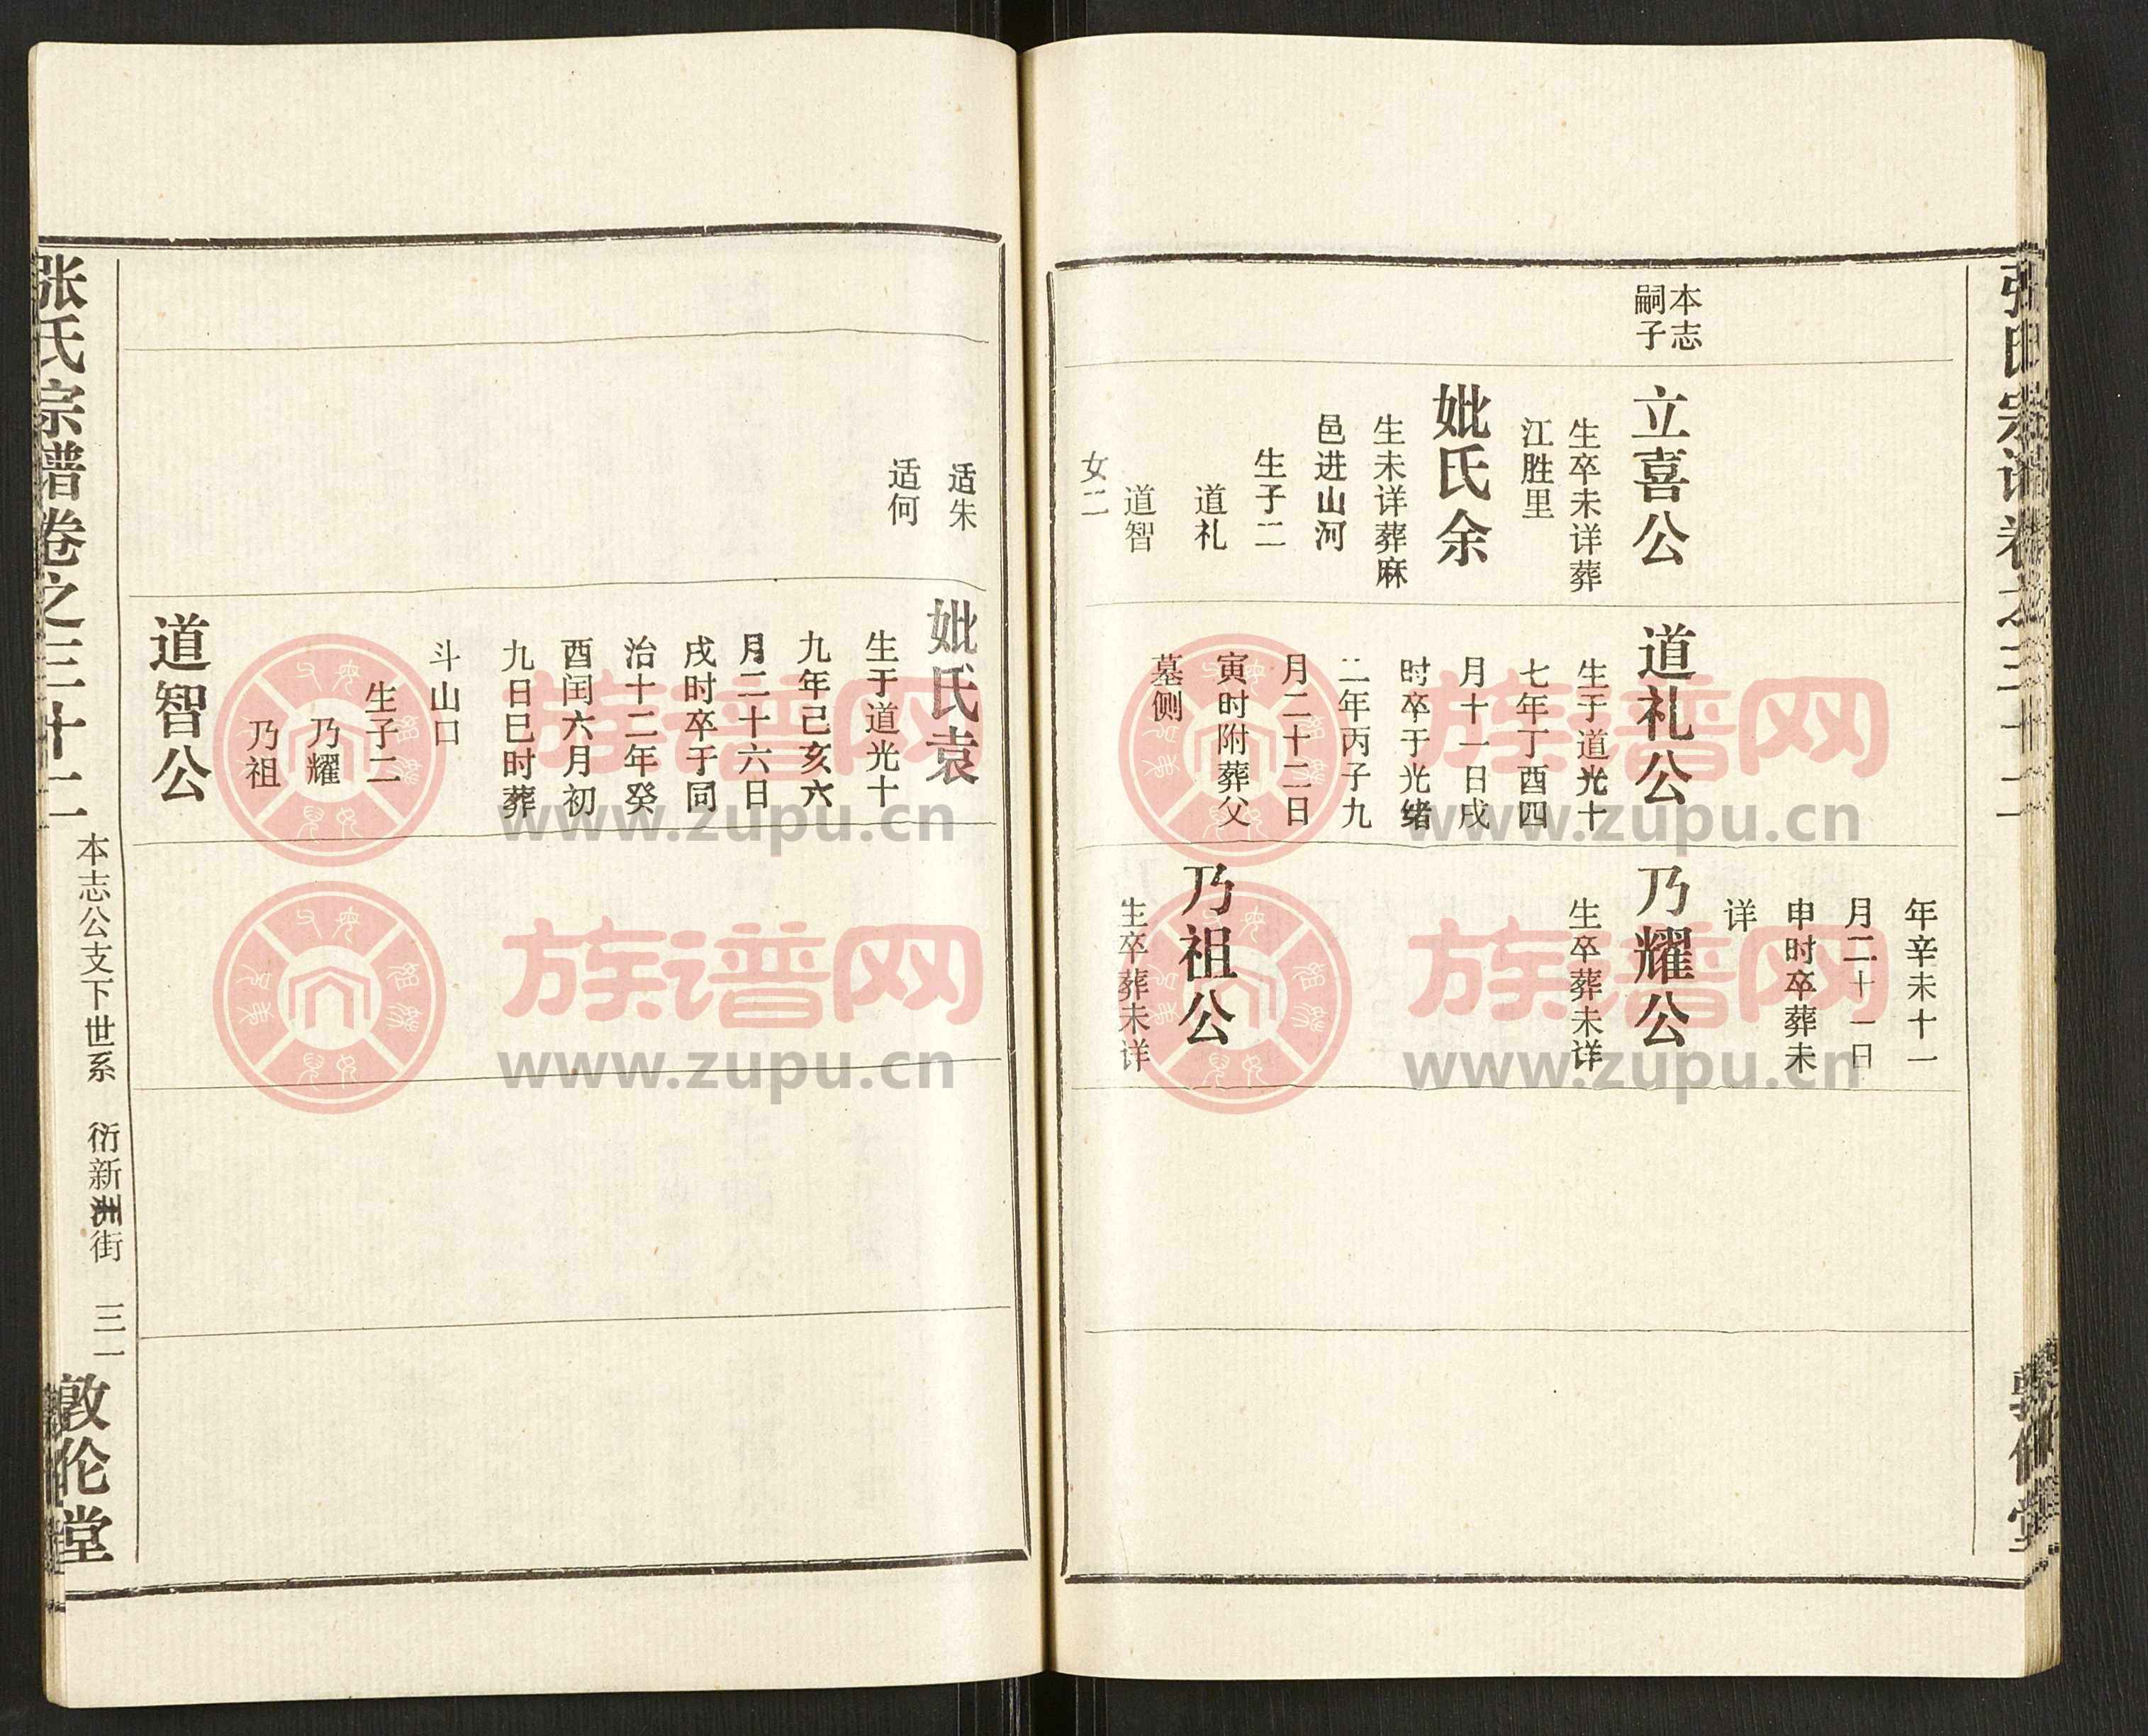 张氏宗谱卷之三十二
本志
嗣子
立喜公
生卒未详葬
江胜里
妣氏余
生未详葬麻
邑进山河
生子二
道礼
道智
女二
道礼公
生于道光十
七年丁酉四
月十一日戌
时卒于光绪
二年丙子九
月二十二日
寅时附葬父
墓侧
年辛未十一
月二十一日
申时卒葬未
详
乃耀公
生卒葬未详
乃祖公
生卒葬未详
敦伦堂
适朱
适何
妣氏袁
生于道光十
九年己亥六
月二十六日
戌时卒于同
治十二年癸
酉闰六月初
九日巳时葬
斗山口
生子二
乃耀
乃祖
道智公
张氏宗谱卷之三十二
本志公支下世系 衍新洲街 三一
敦伦堂
族谱网
www.zupu.cn
族谱网
www.zupu.cn
族谱网
www.zupu.cn
族谱网
www.zupu.cn